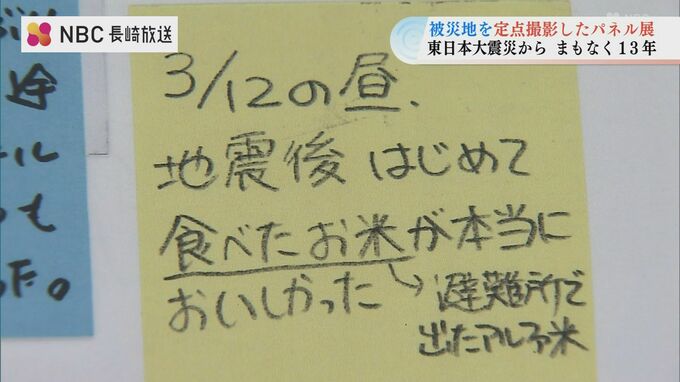 NBC 長崎放送
被災地を定点撮影したパネル展
東日本大震災から まもなく13年
3/12の昼、
地震後 はじめて
食べたお米が本当に
おいしかった
→避難所で
出たアルファ米
途
ール
も
た。